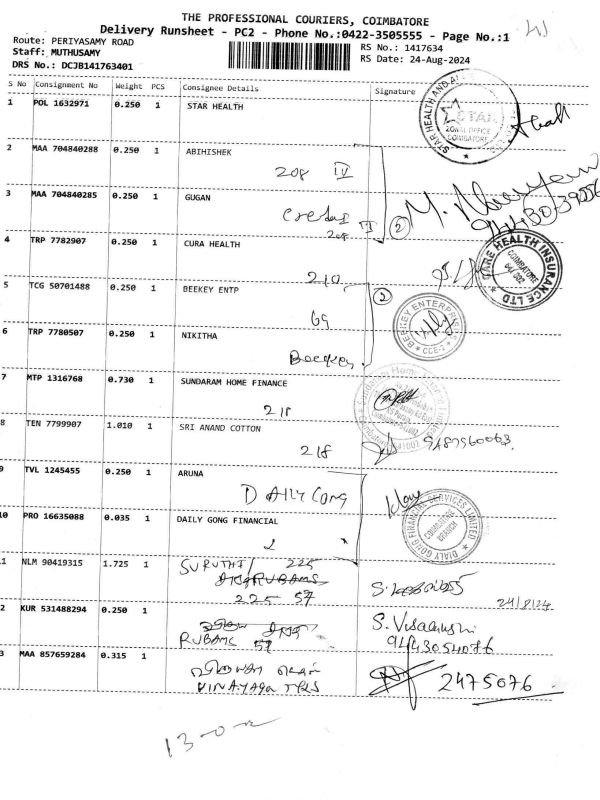 THE PROFESSIONAL COURIERS, COIMBATORE
Delivery Runsheet - PC2 - Phone No.:0422-3505555 - Page No.:1
Route: PERIYASAMY ROAD
Staff: MUTHUSAMY
DRS No.: DCJB141763401
RS No.: 1417634
RS Date: 24-Aug-2024
S No Consignment No Weight PCS Consignee Details Signature
1 POL 1632971 0.250 1 STAR HEALTH
STAR HEALTH AND
STAR
ZONAL OFFICE
COIMBATORE
2 MAA 704840288 0.250 1 ABIHISHEK
208 IV
3 MAA 704840285 0.250 1 GUGAN
208
2
4 TRP 7782907 0.250 1 CURA HEALTH
210
HEALTH INSURANCE LTD
COIMBATORE
5 TCG 50701488 0.250 1 BEEKEY ENTP
69
2
BEEKEY ENTERPRISES
6 TRP 7780507 0.250 1 NIKITHA
Beekey
7 MTP 1316768 0.730 1 SUNDARAM HOME FINANCE
218
8 TEN 7799907 1.010 1 SRI ANAND COTTON
218
9487560063
9 TVL 1245455 0.250 1 ARUNA
DAILY Gong
10 PRO 16635088 0.035 1 DAILY GONG FINANCIAL
DIALY GONG FINANCIAL SERVICES LIMITED
COIMBATORE
BRANCH
1 NLM 90419315 1.725 1
SURUTHI / 225
RUBAMS
225 57
24/8/24
2 KUR 531488294 0.250 1
RUBAMS 57
S. Visalakshi
9443054076
3 MAA 857659284 0.315 1
VINAYAGA TRS
2475076
13-0-2